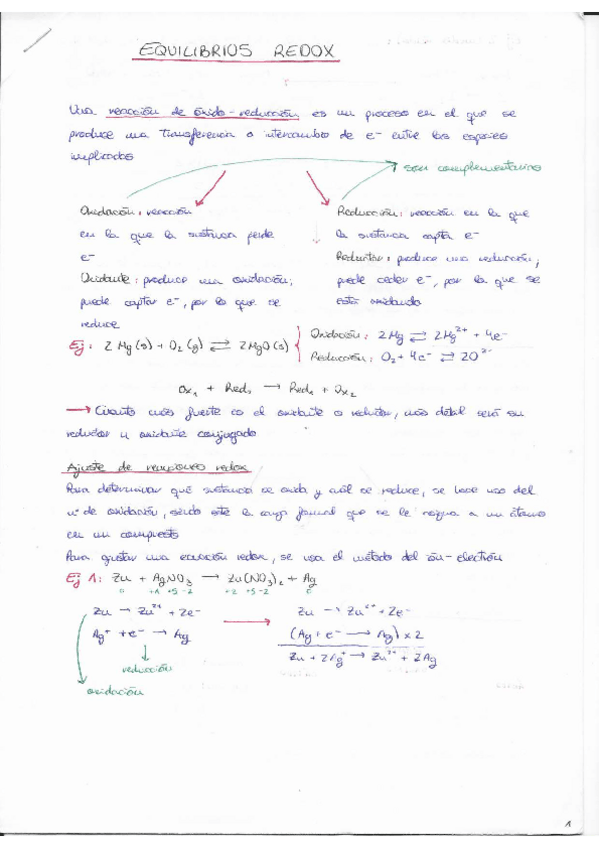 EQUILIBRIOS REDOX
Una reacción de óxido-reducción es un proceso en el que se
produce una transferencia o intercambio de e- entre las especies
implicadas
son complementarios
Oxidación: reacción
en la que la sustancia pierde
e-
Oxidante: produce una oxidación;
puede captar e-, por lo que se
reduce
Reducción: reacción en la que
la sustancia capta e-
Reductor: produce una reducción,
puede ceder e-, por lo que se
está oxidando
Ej: 2 Mg(s) + O₂(g) ⇄ 2MgO(s)
Oxidación: 2Mg ⇄ 2Mg²⁺ + 4e-
Reducción: O₂ + 4e- ⇄ 2O²⁻
Ox₁ + Red₂ → Red₁ + Ox₂
→ Cuanto más fuerte es el oxidante o reductor, más débil será su
reductor u oxidante conjugado
Ajuste de reacciones redox
Para determinar qué sustancia se oxida y cuál se reduce, se hace uso del
nº de oxidación, siendo este la carga formal que se le asigna a un átomo
en un compuesto
Para ajustar una ecuación redox, se usa el método del ión-electrón
Ej 1: Zn + AgNO₃ → Zn(NO₃)₂ + Ag
0 +1 +5 -2 +2 +5 -2 0
Zn → Zn²⁺ + 2e-
Ag⁺ + e- → Ag
reducción
oxidación
Zn → Zn²⁺ + 2e-
(Ag + e- → Ag) x 2
Zn + 2Ag⁺ → Zn²⁺ + 2Ag
1